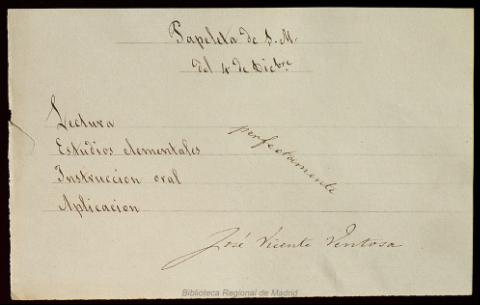 Papeleta de S. M.
del 4 de Dicbre
Lectura
Estudios elementales
Instruccion oral
Aplicacion
perfectamente
José Vicente Ventosa
Biblioteca Regional de Madrid